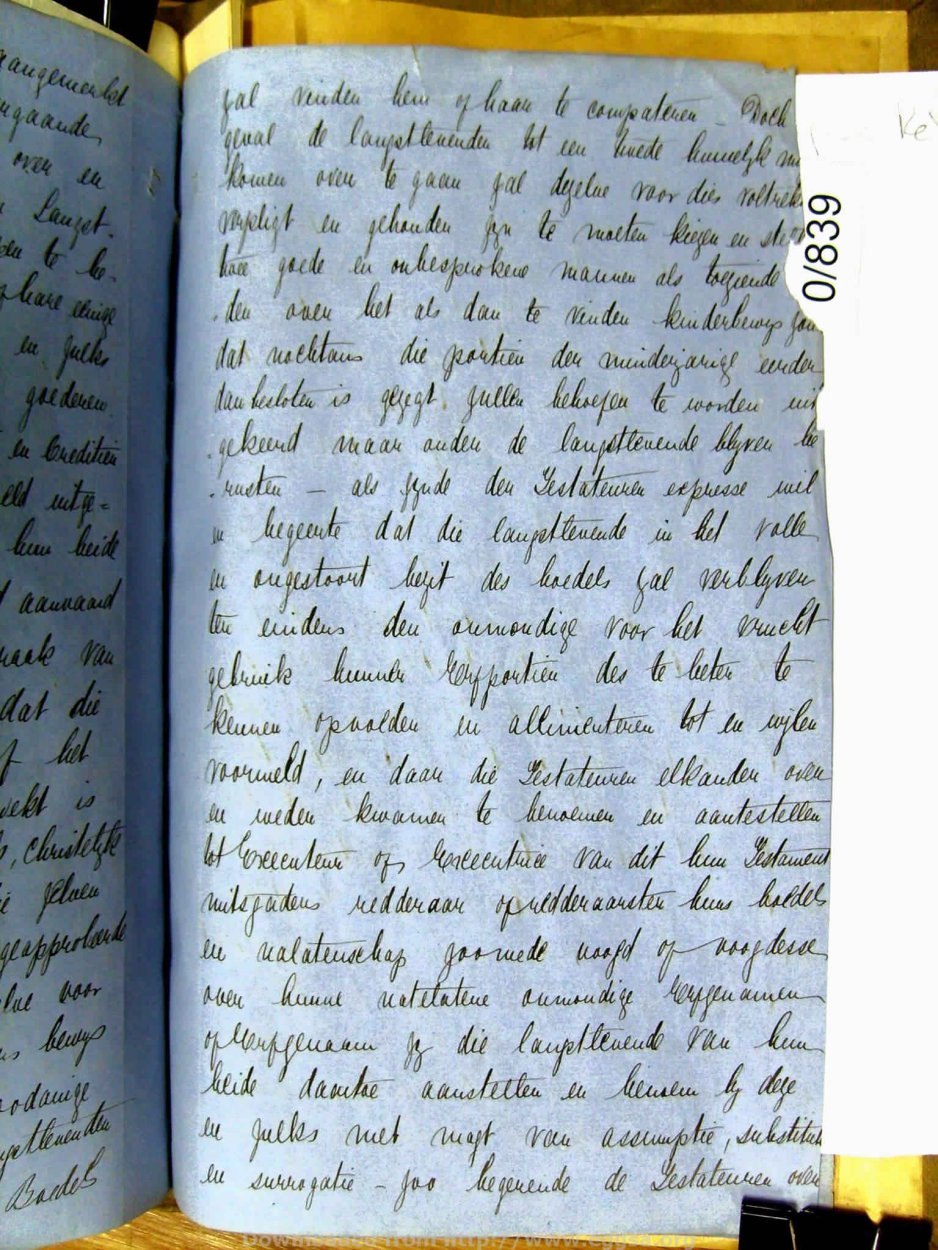 aangemerkt
ngaande
over en
Langst-
en te be-
hare eenige
en zulks
goederen
en Crediten
eld uitge=
hun beide
aanvaard
raak van
dat die
het
wekt is
, christelyke
zelven
geapprobeerde
lve voor
bewys
oodanige
gstlevenden
Boedels
zal vinden hem of haar te competeren – Doch
geval de langstlevenden tot een tweede huwelyk m
komen over te gaan zal dezelve voor dies voltrek
verpligt en gehouden zyn te moeten kiezen en ste
twee goede en onbesprokene mannen als toeziende
-den over het als dan te vinden kinderbewys zon
dat nochtans die portien der minderjarige eerder
dan besloten is gezegt zullen behoefen te worden uit
-gekeerd maar onder de langstlevende blyven be
-rusten – als zynde der Testateuren expresse wil
en begeerte dat die langstlevende in het volle
en ongestoort bezit des boedels zal verblyven
ten eindens den onmondige voor het vrucht
gebruik hunner Erfportien des te beter te
kennen opvoeden en allimenteren tot en wylen
voormeld, en daar die Testateuren elkander over
en weder kwamen te benoemen en aantestellen
tot Executeur of Executrice van dit hun Testament
mitsgaders redderaar of redderaarsten huns boedels
en nalatenschap zoomede voogd of voogdesse
over hunne natelatene onmondige Erfgenamen
of Erfgenaam zy die langstlevende van hun
beide daartoe aanstellen en benoem by deze
en zulks met magt van assumptie, substitut
en surrogatie – zoo begerende de Testateuren over
0/839
Ke
Downloaded from http://www.eggsa.org